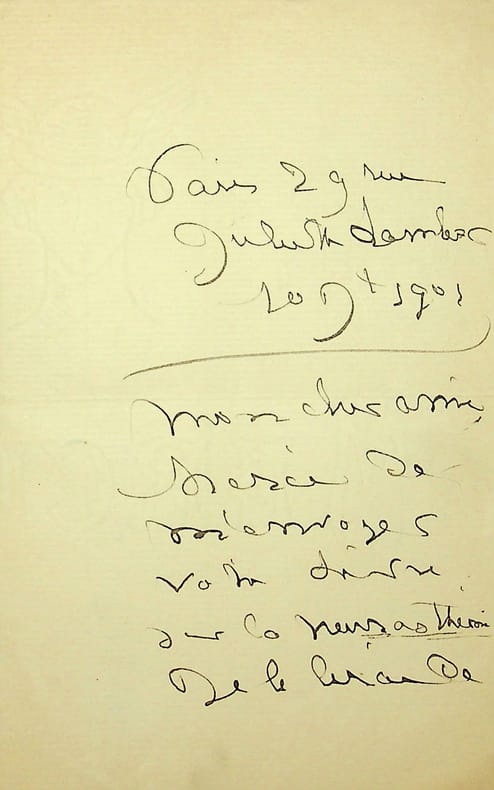 Paris 29 rue
Juliette Lamber
10 Dt 1901
mon cher ami,
Merci de
m'envoyer
votre livre
sur la neurasthénie
De le lirai De